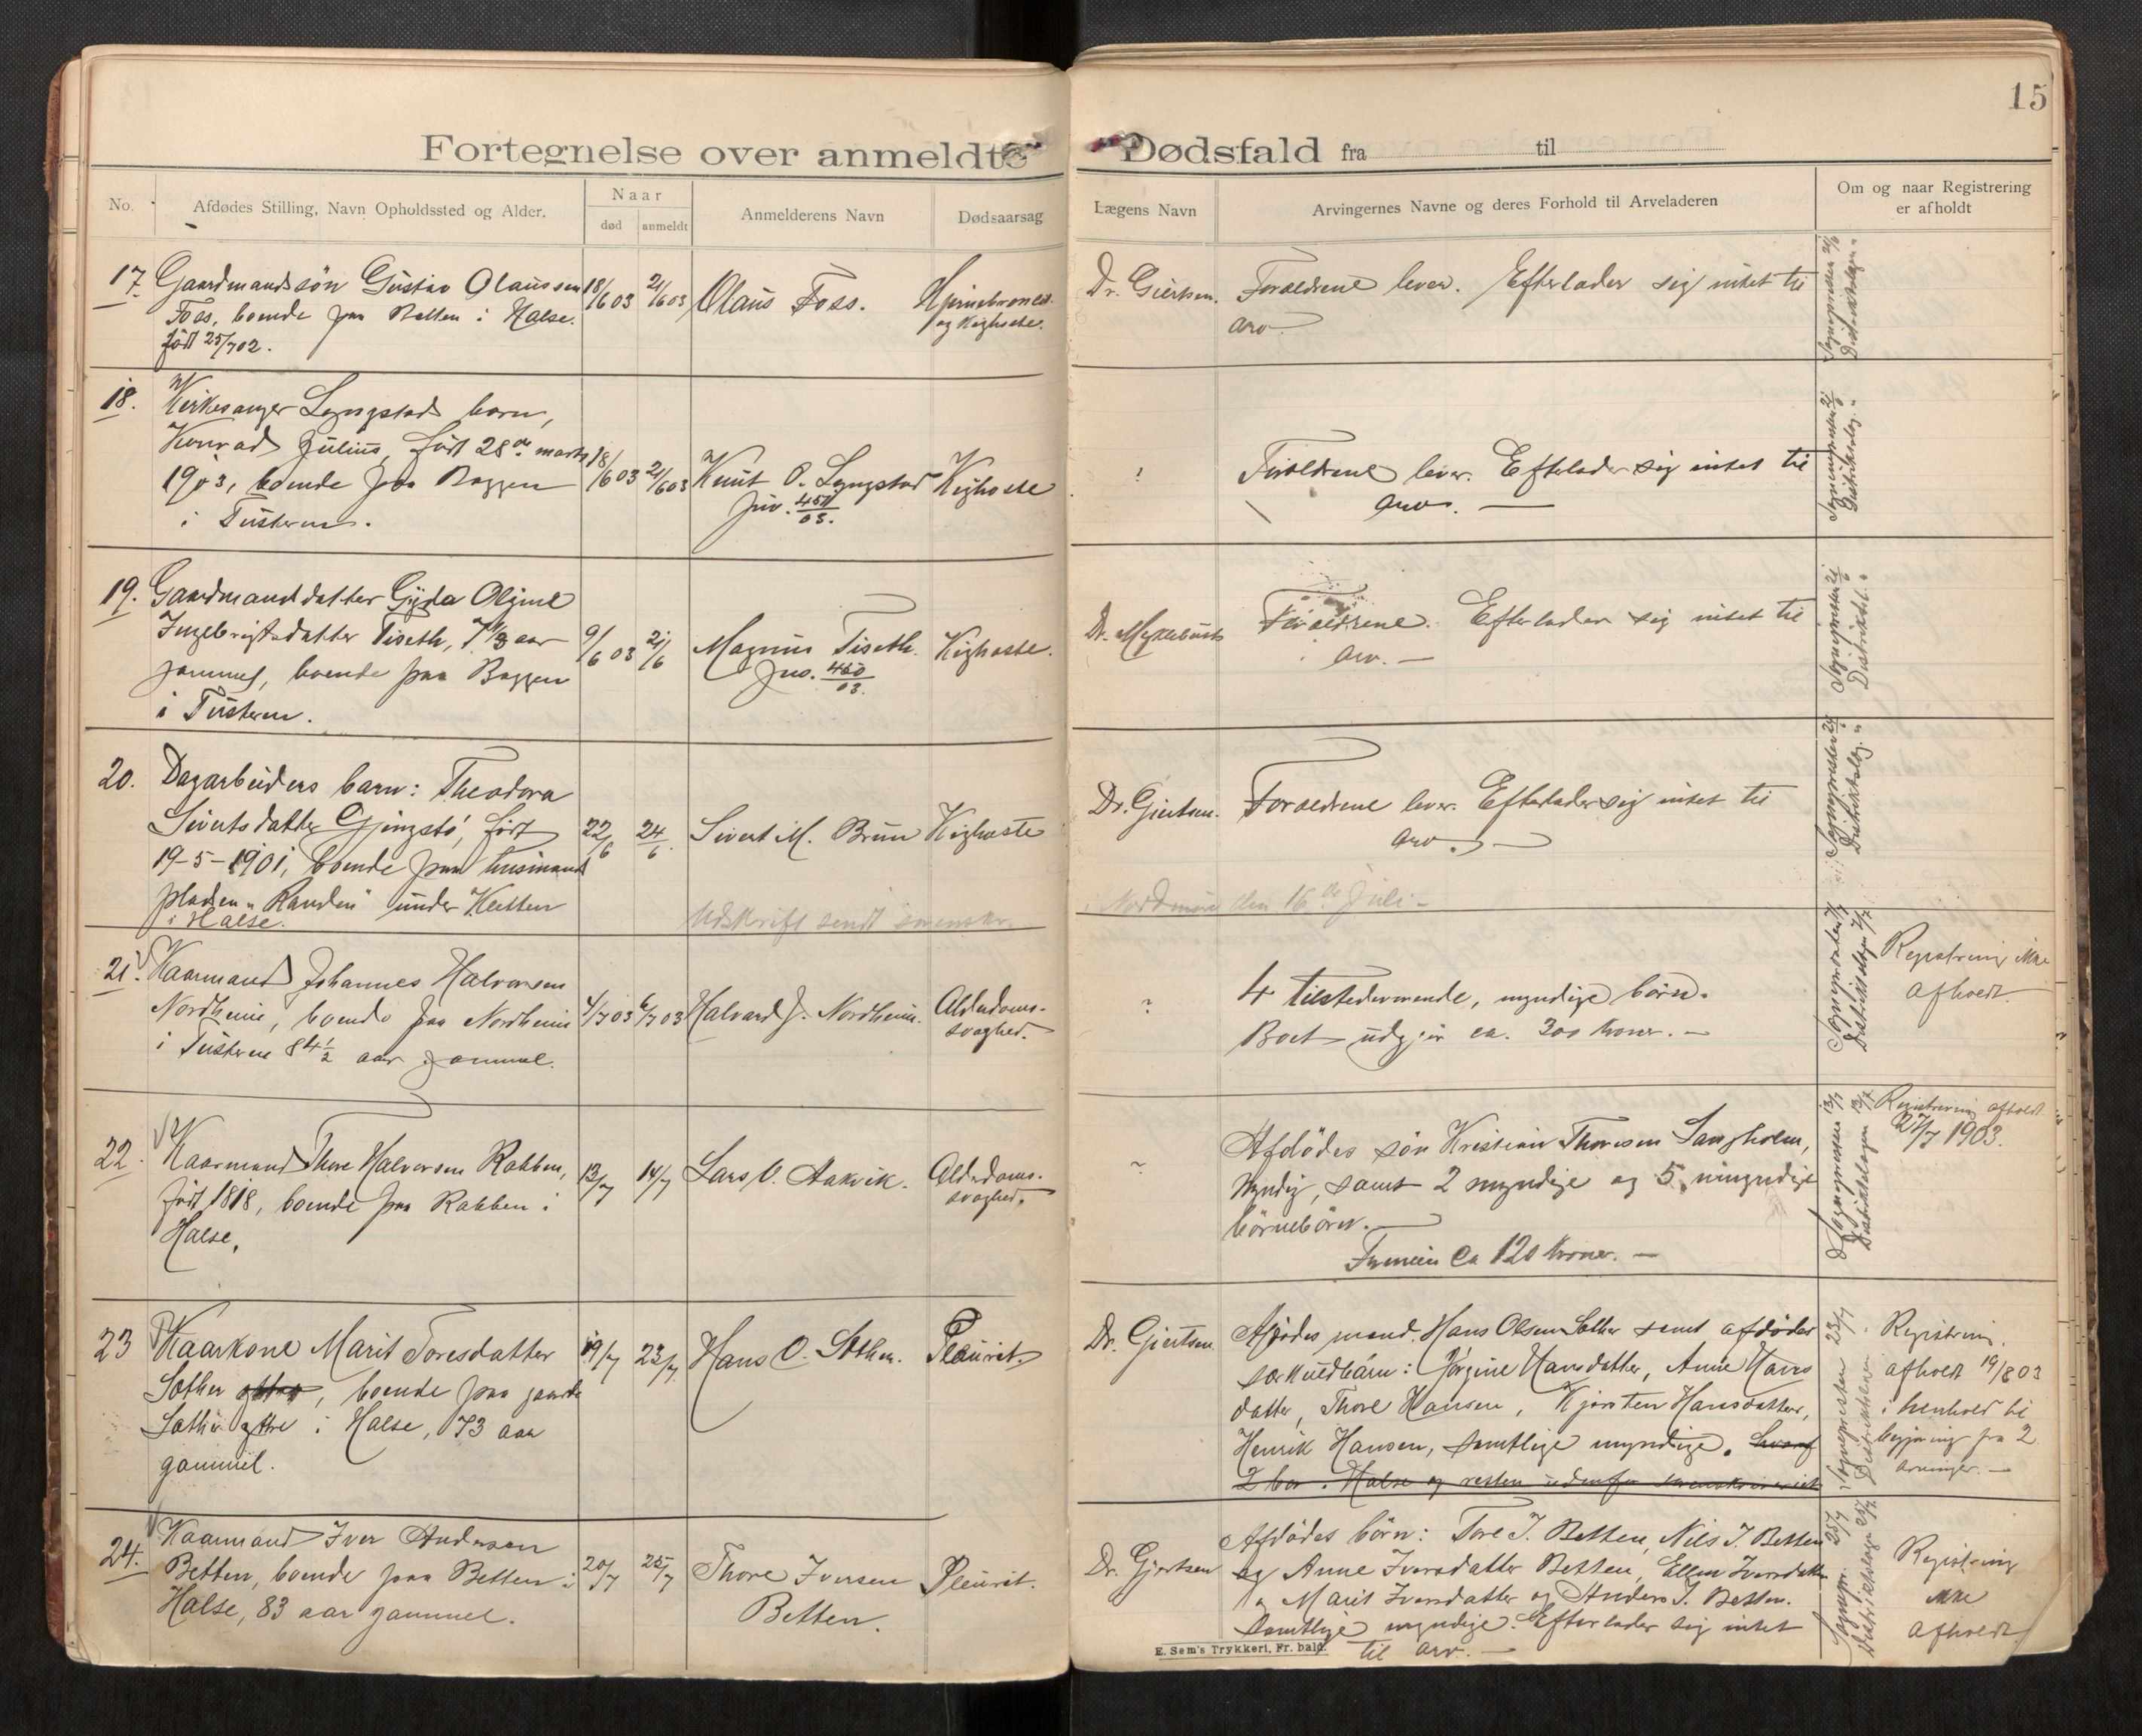 15
Fortegnelse over anmeldte Dødsfald fra til
No.
Afdødes Stilling, Navn Opholdssted og Alder.
Naar
død
anmeldt
Anmelderens Navn
Dødsaarsag
Lægens Navn
Arvingernes Navne og deres Forhold til Arveladeren
Om og naar Registrering
er afholdt
17.
Gaardmandssøn Gustav Olaussen
Foss, boende paa Betten i Halse.
født 25/7 02.
18/6 03
21/6 03
Olaus Foss.
og Kighoste.
Dr. Giertsen.
Forældrene lever. Efterlader sig intet til
arv.
18.
Kirkesanger Lyngstads barn,
Konrad Julius, født 28de marts
1903, boende paa
i Tusteren.
18/6 03
21/6 03
Knut O. Lyngstad
Jnr. 451/03.
Kighoste
?
Forældrene lever. Efterlader sig intet til
arv.
19.
Gaardmandsdatter Gyda Oline
Ingebrigtsdatter Tiseth, 7 1/3 aar
gammel, boende paa
i Tusteren.
9/6 03
21/6
Magnus Tiseth.
Jno. 450/03.
Kighoste.
Dr. Myklebust
Forældrene. Efterlader sig intet til
arv.
20.
Dagarbeiders barn: Theodora
Sivertsdatter Gjengstø, født
19-5-1901, boende paa husmands
pladsen "Randen" under
i Halse.
22/6
24/6
Sivert M. Brun
Kighoste
Dr. Giertsen.
Forældrene lever. Efterlader sig intet til
arv.
Udskrift sendt sorenskr. i Nordmøre den 16de Juli
21.
Kaarmand Johannes Halvorsen
Nordheim, boende paa Nordheim
i Tusteren 84 1/2 aar gammel.
4/7 03
6/7 03
Halvard J. Nordheim.
Alderdoms-
svaghed.
?
4 tilstedeværende, myndige børn.
Boet udgjør ca. 300 kroner.
Registrering ikke
afholdt.
22.
Kaarmand Thore Halvorsen Rabben,
født 1818, boende paa Rabben i
Halse.
13/7
14/7
Lars O. Aakvik.
Alderdoms-
svaghed.
?
Afdødes søn Kristian Thoresen Sangholm,
myndig, samt 2 myndige og 5 umyndige
børnebørn.
Formuen ca 120 kroner.
Registrering afholdt
27/7 1903.
23
Kaarkone Marit Toresdatter
Sæther, boende paa gaarden
Sæther ytre i Halse, 73 aar
gammel.
19/7
23/7
Hans O. Sæther.
Pleurit.
Dr. Gjertsen.
Afdødes mand. Hans Olsen Sæther samt afdødes
særkuldbarn: Jørgine Hansdatter, Anne Hans
datter, Thore Hansen, Kjersten Hansdatter,
Henrik Hansen, samtlige myndige. hvoraf
2 bor i Halse og resten udenfor
Registrering
afholdt 19/8 03
i henhold til
begjæring fra 2
arvinger.
24.
Kaarmand Iver Andersen
Betten, boende paa Betten i
Halse, 83 aar gammel.
20/7
25/7
Thore Iversen
Betten.
Pleurit.
Dr. Gjertsen
Afdødes børn: Tore I. Betten, Nils I. Betten
og Anne Iversdatter Betten, Ellen Iversdatter
og Marit Iversdatter og Anders I. Betten.
Samtlige myndige. Efterlader sig intet
til arv.
Registrering
ikke
afholdt
E. Sem's Trykkeri, Fr. hald.